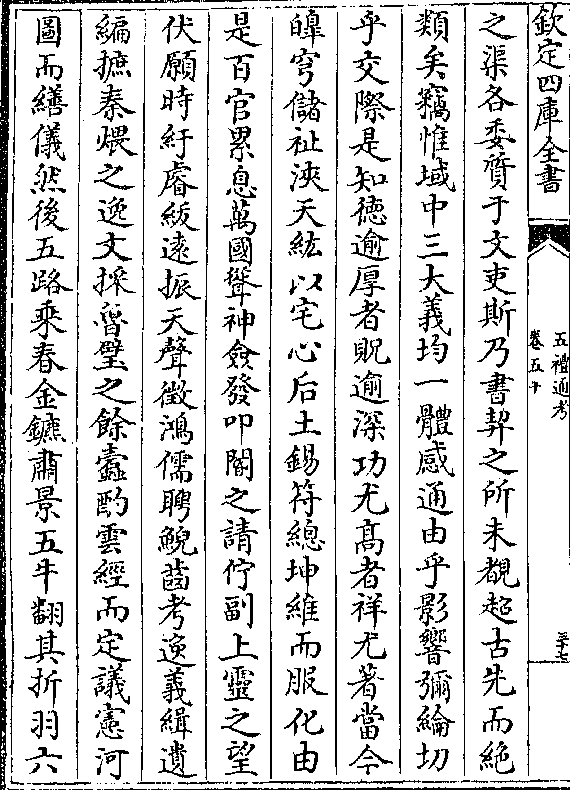 欽定四庫全書
五禮通考
卷五十
三十七
之渠各委質于文吏斯乃書契之所未覩超古先而絶
類矣竊惟域中三大義均一體感通由乎影響彌綸切
乎交際是知德逾厚者貺逾深功尤髙者祥尤著當今
皥穹儲祉浹天紘以宅心后土錫符總坤維而服化由
是百官累息萬國聳神僉發叩閽之請佇副上靈之望
伏願時紆睿綍逺振天聲徴鴻儒聘鯢齒考逸義緝遺
編摭秦煨之逸文採魯壁之餘蠧酌雲經而定議憲河
圖而繕儀然後五路乘春金鑣肅景五牛翻其折羽六